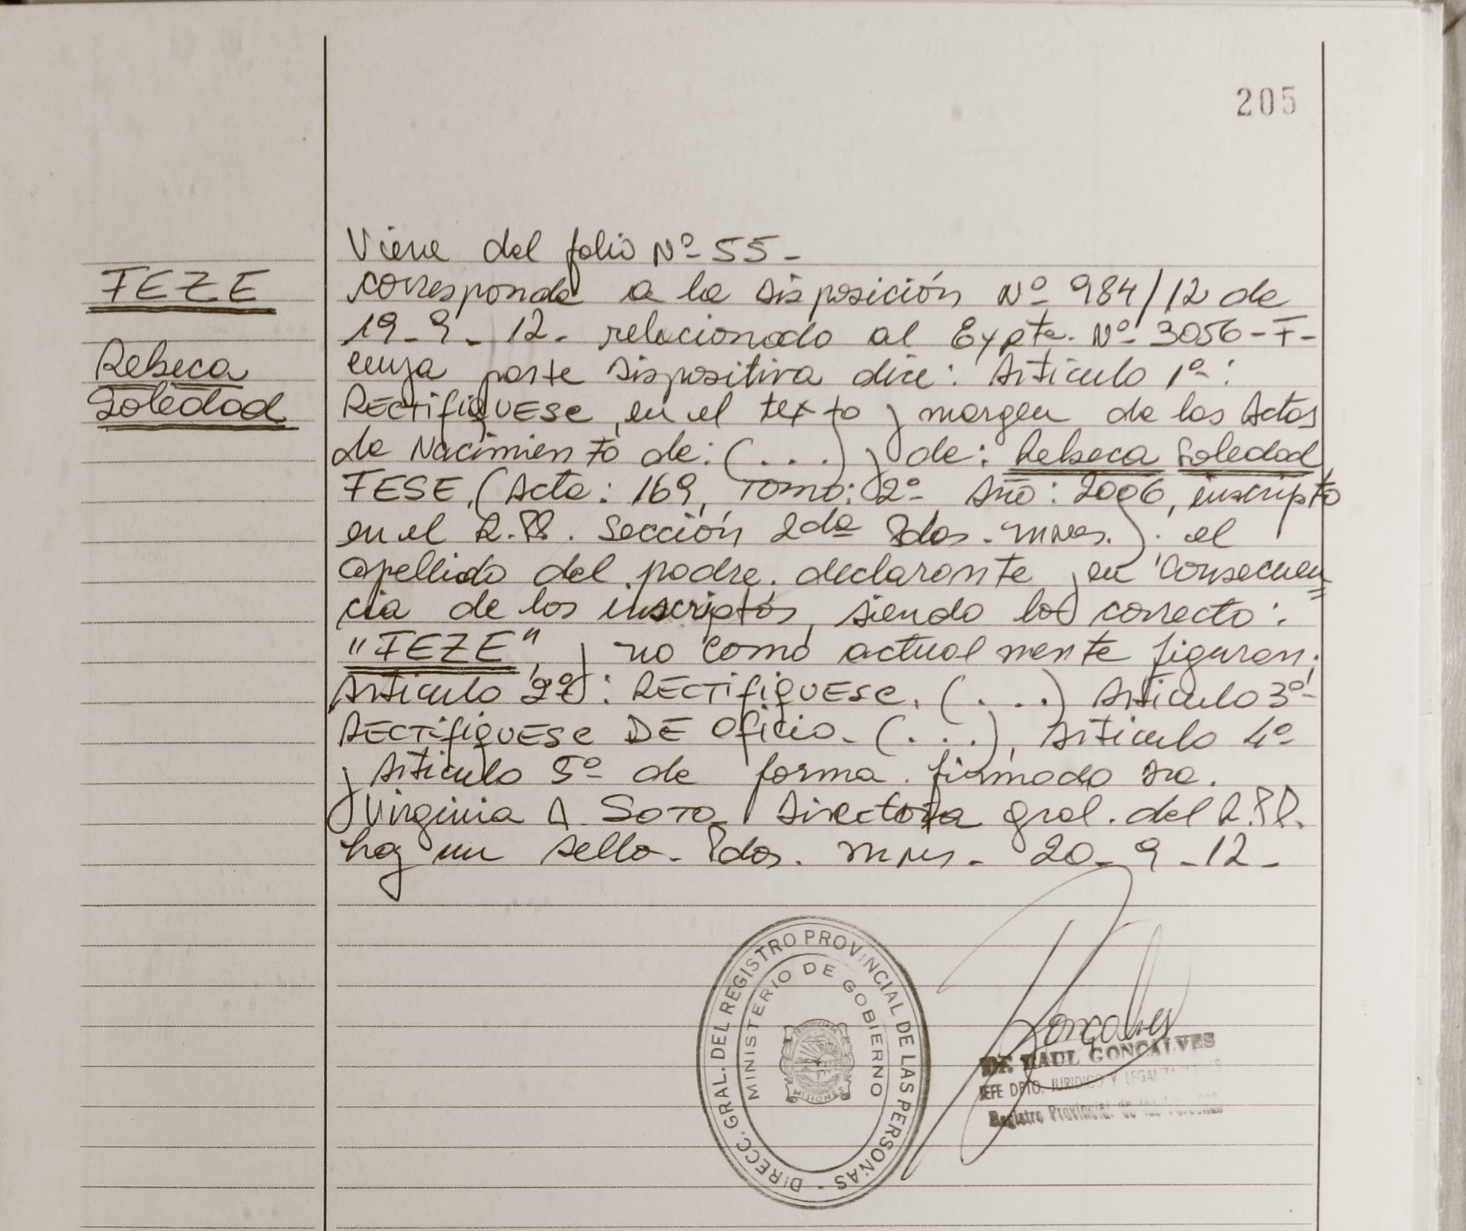 205
FEZE
Rebeca
Soledad
Viene del folio Nº 55 -
corresponde a la disposición Nº 984/12 de
19-9-12. relacionado al Expte. Nº 3056-F-
cuya parte dispositiva dice: Artículo 1º:
RECTifiQUESE, en el texto y margen de las Actas
de Nacimiento de: (...) y de: Rebeca Soledad
FESE, (Acta: 169, Tomo: 2º Año: 2006, inscripto
en el R.PP. Sección 2da Pdas. mnes.). el
apellido del padre declarante y en consecuen=
cia de los inscriptos, siendo lo correcto:
"FEZE", y no como actualmente figuran.
Artículo 2º: RECTifiQUESE. (...) Artículo 3º-
RECTifiQUESE DE Oficio. (...), Artículo 4º
y Artículo 5º de forma. firmado Sra.
Virginia A. SOTO Directora gral. del R.PP.
hay un sello. Pdas. mnes. 20-9-12-
DIRECC. GRAL. DEL REGISTRO PROVINCIAL DE LAS PERSONAS -
MINISTERIO DE GOBIERNO
MISIONES
Dr. RAUL GONCALVES
JEFE DPTO. JURIDICO Y
Registro Provincial de las Personas